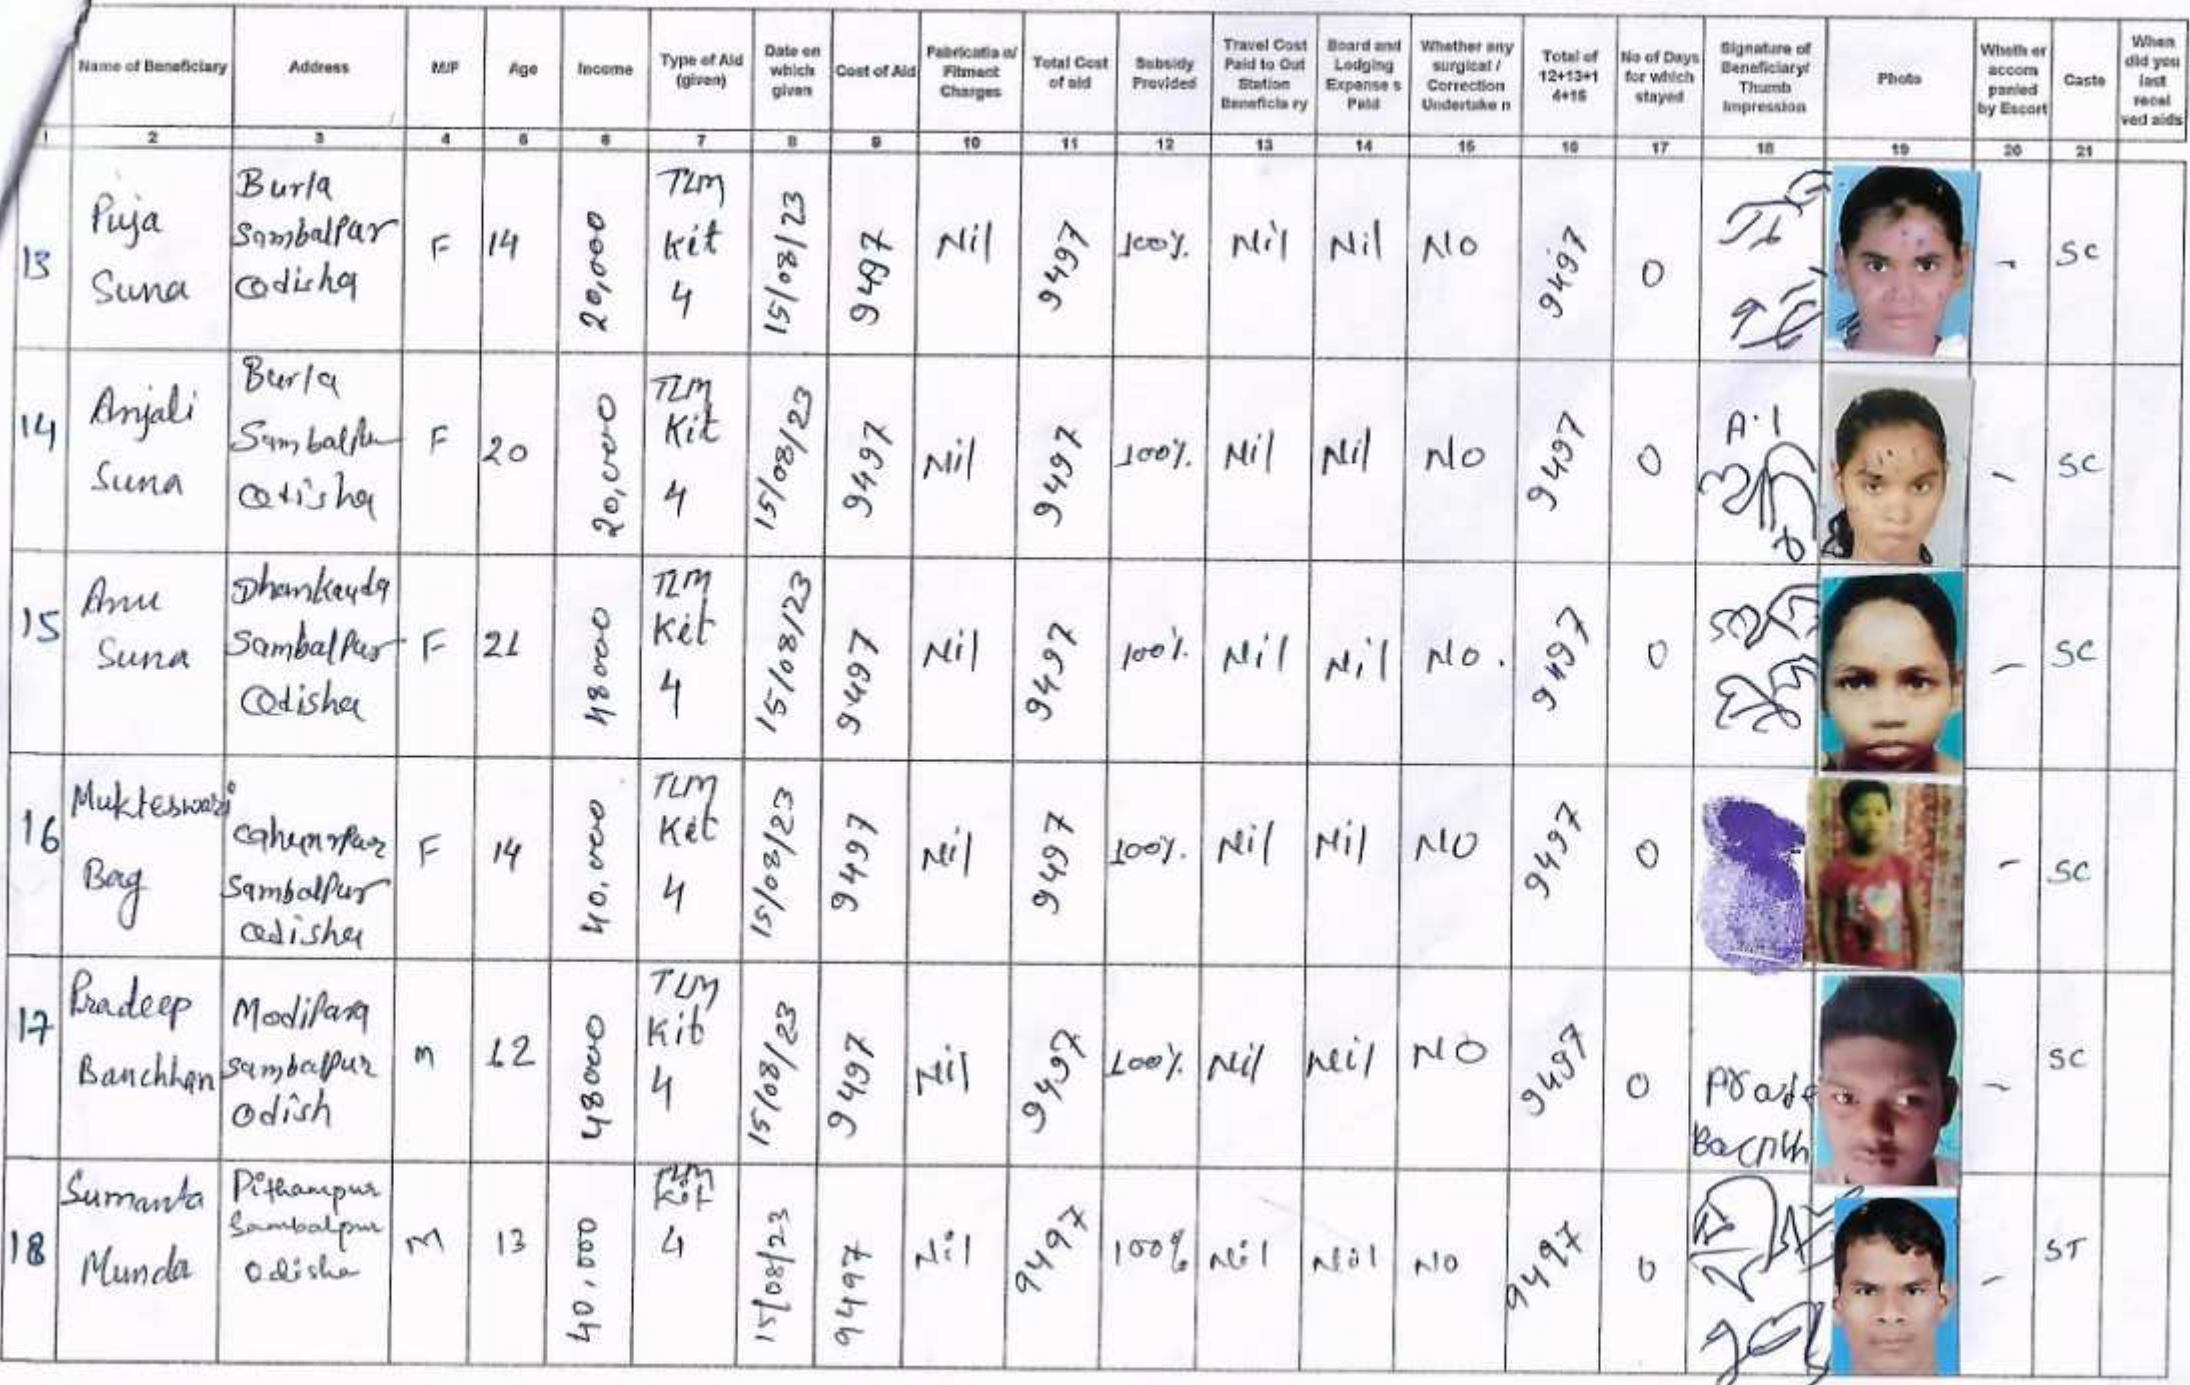 Name of Beneficiary Address M/F Age Income Type of Aid (given) Date on which given Cost of Aid Fabricatio n/ Fitment Charges Total Cost of aid Subsidy Provided Travel Cost Paid to Out Station Beneficia ry Board and Lodging Expense s Paid Whether any surgical / Correction Undertake n Total of 12+13+1 4+15 No of Days for which stayed Signature of Beneficiary/ Thumb Impression Photo Wheth er accom panied by Escort Caste When did you last recei ved aids
1 2 3 4 5 6 7 8 9 10 11 12 13 14 15 16 17 18 19 20 21
13 Puja Suna Burla Sambalpur Odisha F 14 20,000 TLM Kit 4 15/08/23 9497 Nil 9497 100% Nil Nil No 9497 0 - SC
14 Anjali Suna Burla Sambalpu Odisha F 20 20,000 TLM Kit 4 15/08/23 9497 Nil 9497 100% Nil Nil No 9497 0 - SC
15 Anu Suna Dhankauda Sambalpur Odisha F 21 48000 TLM Kit 4 15/08/23 9497 Nil 9497 100% Nil Nil No. 9497 0 - SC
16 Mukteswari Bag Sambalpur Odisha F 14 40,000 TLM Kit 4 15/08/23 9497 Nil 9497 100% Nil Nil NO 9497 0 - SC
17 Pradeep Banchhan Modipara Sambalpur Odish M 12 48000 TLM Kit 4 15/08/23 9497 Nil 9497 100% Nil Nil NO 9497 0 - SC
18 Sumanta Munda Pithampur Sambalpur Odisha M 13 40,000 TLM Kit 4 15/08/23 9497 Nil 9497 100% Nil Nil NO 9497 0 - ST